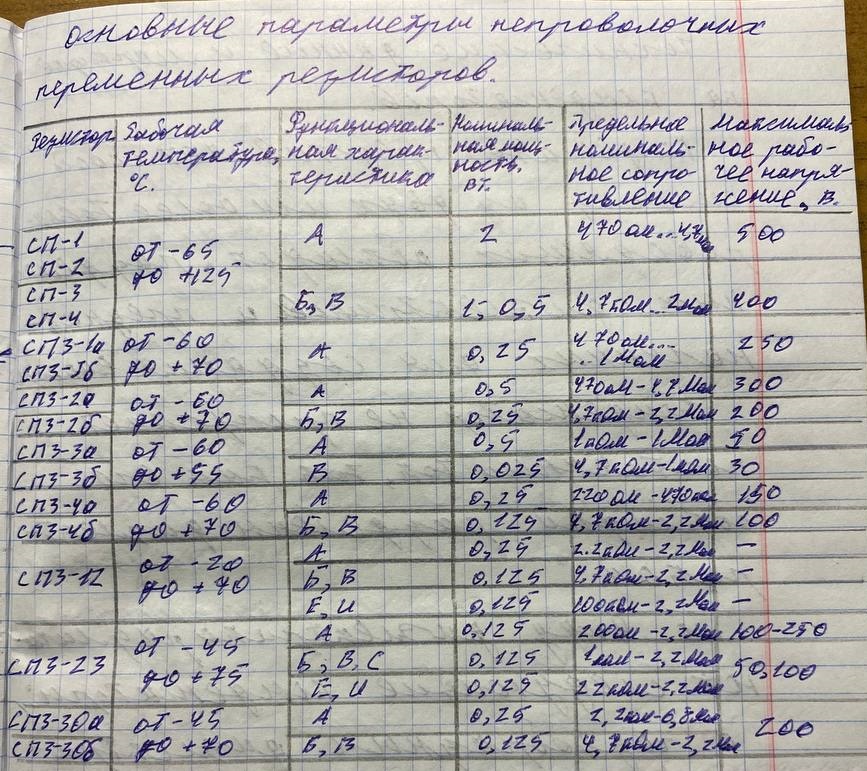 основные параметры непроволочных
переменных резисторов.
Резистор Рабочая температура, °С. Функциональ-ная харак-теристика Номиналь-ная мощ-ность. вт. Предельное номиналь-ное сопро-тивление Максималь-ное рабо-чее напря-жение, В.
СП-1 А 2 470 ом...4,7мом 500
СП-2 от -65
СП-3 до +125
СП-4 Б, В 1; 0,5 4,7кОм...2мом 400
СП3-1а от -60 А 0,25 470ом... 250
СП3-1б до +70 ...1Мом
СП3-2а от -60 А 0,5 470ом-4,7Мом 300
СП3-2б до +70 Б, В 0,25 4,7ком-2,2Мом 200
СП3-3а от -60 А 0,5 1ком-1Мом 50
СП3-3б до +55 В 0,025 4,7ком-1мом 30
СП3-4а от -60 А 0,25 220ом-470ком 150
СП3-4б до +70 Б, В 0,125 4,7кОм-2,2Мом 100
от -20 А 0,25 2.2кОм-2,2Мом —
СП3-12 до +70 Б, В 0,125 4,7кОм-2,2Мом —
Е, И 0,125 100ком-2,2Мом —
от -45 А 0,125 200ом-2,2Мом 100-250
СП3-23 до +75 Б, В, С 0,125 1ком-2,2Мом 50,100
Е, И 0,125 22кОм-2,2Мом
СП3-30а от -45 А 0,25 2,2ком-6,8Мом 200
СП3-30б до +70 Б, В 0,125 4,7кОм-2,2Мом